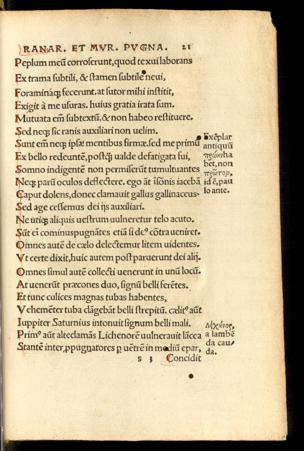 RANAR. ET MVR. PVGNA. 21
Peplum meũ corroserunt, quod texui laborans
Ex trama subtili, & stamen subtile neui,
Foraminaq; fecerunt. at sutor mihi institit,
Exigit à me usuras. huius gratia irata sum.
Mutuata em̃ subtextũ, & non habeo restituere.
Sed neq; sic ranis auxiliari non uelim.
Sunt em̃ neq; ipsæ mentibus firmæ. sed me primũ
Ex bello redeuntẽ, postq̃ ualde defatigata fui,
Somno indigentẽ non permiserũt tumultuantes
Neq; parũ oculos deflectere. ego aũt ĩsõnis iacebã
Caput dolens, donec clamauit gallus gallinaceus
Sed age cessemus dei ijs auxiliari.
Ne utiq; aliquis uestrum uulneretur telo acuto.
Sũt em̃ cominuspugnãtes etiã si de⁹ cõtraueniret.
Omnes autẽ de cælo delectemur litem uidentes.
Vt certe dixit, huic autem postparuerunt dei alij.
Omnes simul autẽ collecti uenerunt in unũ locũ.
At uenerũt præcones duo, signũ belli ferẽtes.
Et tunc culices magnas tubas habentes,
Vehemẽter tuba clãgebãt belli strepitũ. cælit⁹ aũt
Iuppiter Saturnius intonuit signum belli mali.
Prim⁹ aũt alteclamãs Lichenorẽ uulnerauit lãcea
Stantẽ inter, ppugnatores p uẽtrẽ in mediũ epar,
Exẽplar
antiquũ
ha
bet, non
id ẽ, pau
lo ante.
a lambẽ
da cau/
da.
s 3 Concidit